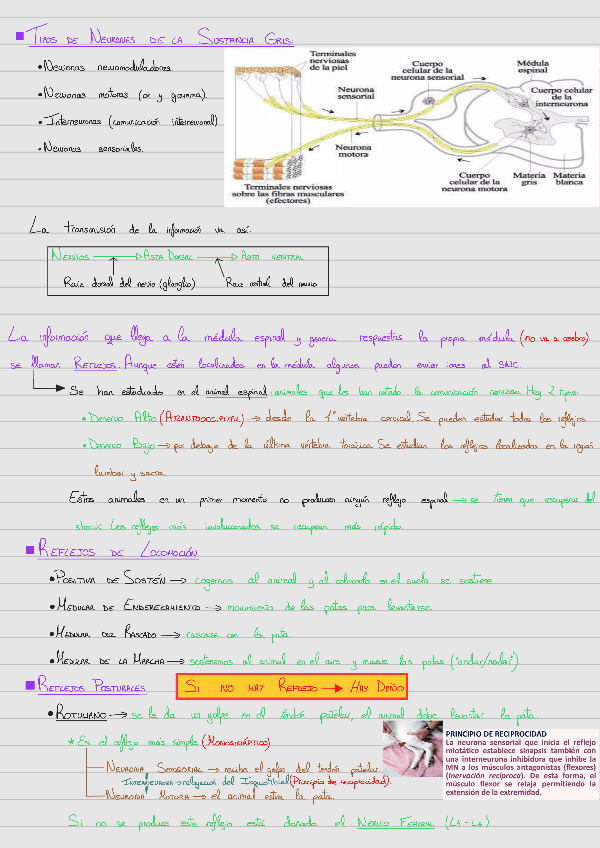 TIPOS DE NEURONAS DE LA SUSTANCIA GRIS:
• Neuronas neuromoduladoras.
• Neuronas motoras (α y gamma).
• Interneuronas (comunicación interneuronal)
• Neuronas sensoriales.
Terminales
nerviosas
de la piel
Cuerpo
celular de la
neurona sensorial
Médula
espinal
Neurona
sensorial
Cuerpo celular
de la
interneurona
Neurona
motora
Terminales nerviosas
sobre las fibras musculares
(efectores)
Cuerpo
celular de la
neurona motora
Materia
gris
Materia
blanca
La transmisión de la información va así:
NERVIOS → ASTA DORSAL → ASTA VENTRAL
Raíz dorsal del nervio (ganglio) Raíz ventral del nervio
La información que llega a la médula espinal y genera respuestas la propia médula (no va a cerebro)
se llaman REFLEJOS. Aunque estén localizados en la médula algunos pueden enviar al SNC.
→ Se han estudiado en el animal espinal: animales que les han cortado la comunicación nerviosa. Hay 2 tipos:
• Denervo Alto (ATLANTOOCCIPITAL) → desde la 1ª vértebra cervical. Se pueden estudiar todos los reflejos
• Denervo Bajo → por debajo de la última vértebra torácica. Se estudian los reflejos localizados en la región
lumbar y sacra.
Estos animales en un primer momento no producen ningún reflejo espinal → se tienen que recuperar del
shock. Los reflejos más involucionados se recuperan más rápido.
REFLEJOS DE LOCOMOCIÓN
• POSITIVA DE SOSTÉN → cogemos al animal y al colocarlo en el suelo se sostiene
• MEDULAR DE ENDEREZAMIENTO → movimiento de las patas para levantarse.
• MEDULAR DEL RASCADO → rascarse con la pata
• MEDULAR DE LA MARCHA → sostenemos al animal en el aire y mueve las patas ("andar/nadar").
REFLEJOS POSTURALES
SI NO HAY REFLEJO → HAY DAÑO
• ROTULIANO → se le da un golpe en el tendón patelar, el animal debe levantar la pata.
★ Es el reflejo más simple (MONOSINÁPTICO)
NEURONA SENSORIAL → recibe el golpe del tendón patelar
INTERNEURONA → relajación del Isquiotibial (Principio de reciprocidad).
NEURONA MOTORA → el animal estira la pata.
PRINCIPIO DE RECIPROCIDAD
La neurona sensorial que inicia el reflejo
miotático establece sinapsis también con
una interneurona inhibidora que inhibe la
MN a los músculos antagonistas (flexores)
(inervación recíproca). De esta forma, el
músculo flexor se relaja permitiendo la
extensión de la extremidad.
Si no se produce este reflejo está dañado el NERVIO FEMORAL (L4-L6)